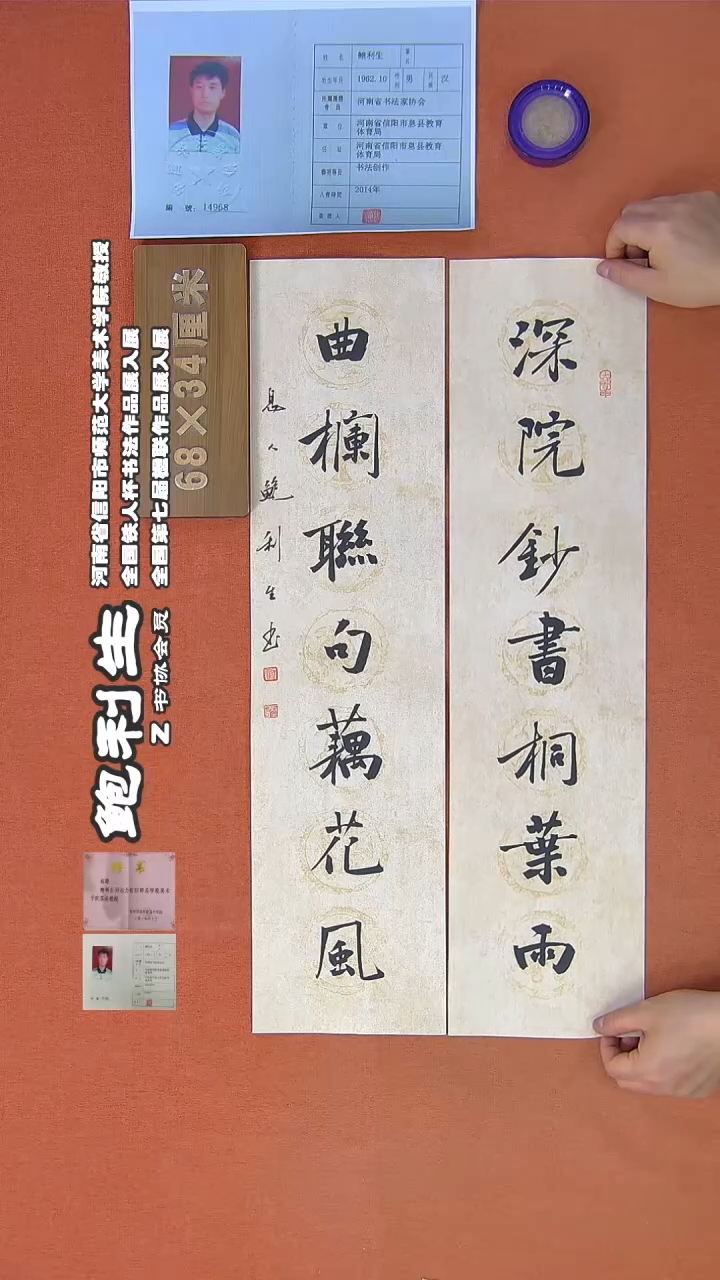 姓名 鲍利生
出生年月 1962.10 性别 男 民族 汉
河南省书法家协会
单位 河南省信阳市息县教育体育局
住址 河南省信阳市息县教育体育局
书法创作
2014年
編號:14968
68×34厘米
深院鈔書桐葉雨
曲欄聯句藕花風
息人鲍利生书
河南省信阳市师范大学美术学院教授
全国铁人杯书法作品展入展
全国第七届楹联作品展入展
鲍利生
Z 书协会员